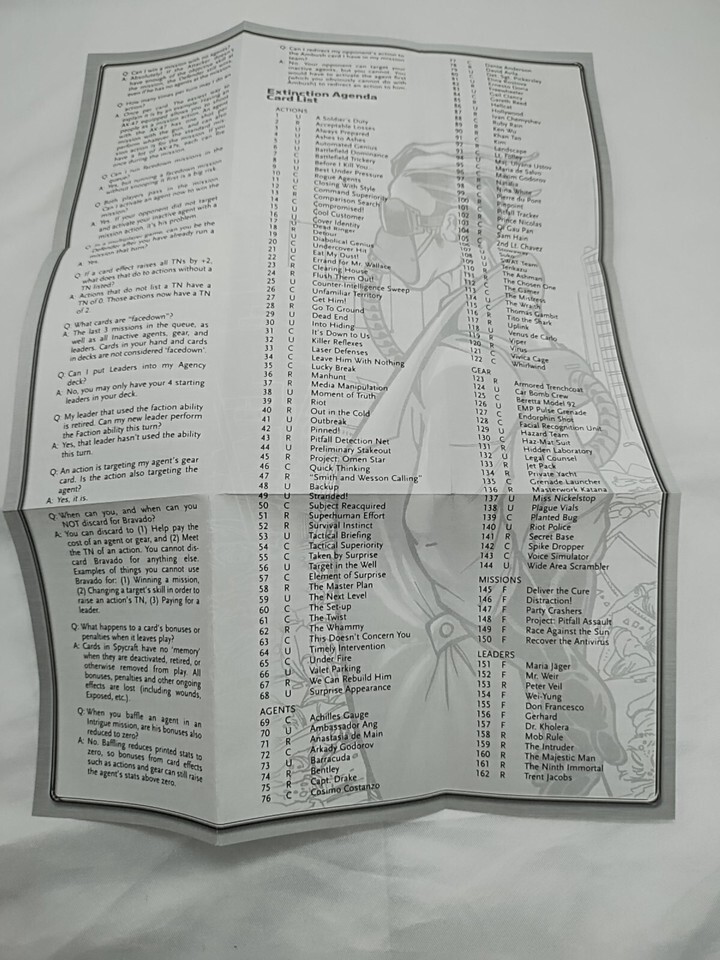 Q: Can I win a mission with no agents?
Q: Can I run facedown missions in the
A: Yes, but winning a facedown mission
without snooping it first is a big risk
Q: Both players pass in the mission.
Can I activate an agent now to win the
mission?
A: Yes. If your opponent did not target
and activate your inactive agent with a
mission action, it's his problem.
Q: In a multiplayer game, can you be the
Defender after you have already run a
mission that turn?
A: Yes
Q: If a card effect raises all TNs by +2,
what does that do to actions without a
TN listed?
A: Actions that do not list a TN have a
TN of 0. Those actions now have a TN
of 2
Q: What cards are "facedown"?
A: The last 3 missions in the queue, as
well as all Inactive agents, gear, and
leaders. Cards in your hand and cards
in decks are not considered 'facedown'.
Q: Can I put Leaders into my Agency
deck?
A: No, you may only have your 4 starting
leaders in your deck.
Q: My leader that used the faction ability
is retired. Can my new leader perform
the Faction ability this turn?
A: Yes, that leader hasn't used the ability
this turn.
Q: An action is targeting my agent's gear
card. Is the action also targeting the
agent?
A: Yes, it is.
Q: When can you, and when can you
NOT discard for Bravado?
A: You can discard to (1) Help pay the
cost of an agent or gear, and (2) Meet
the TN of an action. You cannot dis-
card Bravado for anything else.
Examples of things you cannot use
Bravado for: (1) Winning a mission,
(2) Changing a target's skill in order to
raise an action's TN, (3) Paying for a
leader.
Q: What happens to a card's bonuses or
penalties when it leaves play?
A: Cards in Spycraft have no 'memory'
when they are deactivated, retired, or
otherwise removed from play. All
bonuses, penalties and other ongoing
effects are lost (including wounds,
Exposed, etc.).
Q: When you baffle an agent in an
Intrigue mission, are his bonuses also
reduced to zero?
A: No. Baffling reduces printed stats to
zero, so bonuses from card effects
such as actions and gear can still raise
the agent's stats above zero.
Q: Can I redirect my opponent's action to
the Ambush card I have to my mission
team?
A: No. Your opponent can target your
inactive agents, but you cannot. You
would have to activate the agent first
(which you obviously cannot do with
Ambush) to redirect an action to him.
Extinction Agenda
Card List
ACTIONS
1 U A Soldier's Duty
Acceptable Losses
Always Prepared
Ashes to Ashes
Automated Genius
Battlefield Dominance
Battlefield Trickery
Before I Kill You...
Best Under Pressure
Rogue Agents
Closing With Style
Command Superiority
Comparison Search
Compromised!
Cool Customer
Cover Identity
Dead Ringer
Detour
Diabolical Genius
Undercover Hit
Eat My Dust!
22 C Errand for Mr. Wallace
23 R Clearing House
24 R Flush Them Out!
25 U Counter-Intelligence Sweep
26 C Unfamiliar Territory
27 U Get Him!
28 R Go To Ground
29 U Dead End
30 U Into Hiding
31 C It's Down to Us
32 U Killer Reflexes
33 C Laser Defenses
34 C Leave Him With Nothing
35 C Lucky Break
36 R Manhunt
37 R Media Manipulation
38 U Moment of Truth
39 R Riot
40 R Out in the Cold
41 U Outbreak
42 U Pinned!
43 R Pitfall Detection Net
44 U Preliminary Stakeout
45 R Project: Omen Star
46 C Quick Thinking
47 R "Smith and Wesson Calling"
48 U Backup
49 U Stranded!
50 C Subject Reacquired
51 R Superhuman Effort
52 R Survival Instinct
53 U Tactical Briefing
54 C Tactical Superiority
55 C Taken by Surprise
56 U Target in the Well
57 C Element of Surprise
58 R The Master Plan
59 U The Next Level
60 C The Set-up
61 C The Twist
62 R The Whammy
63 C This Doesn't Concern You
64 U Timely Intervention
65 C Under Fire
66 U Valet Parking
67 R We Can Rebuild Him
68 U Surprise Appearance
AGENTS
69 C Achilles Gauge
70 U Ambassador Ang
71 R Anastasia de Main
72 C Arkady Godorov
73 U Barracuda
74 R Bentley
75 R Capt. Drake
76 C Cosimo Costanzo
Dame Anderson
David Avila
Det. Sgt. Pickersley
Gail Clancy
Gareth Reed
Hellcat
Hollywood
Ivan Chernyshev
Ruby Rain
Ken Wu
Khan Tao
Kim
Landscape
Lt. Folley
Maria de Salvo
Maxim Godorov
Natalia
Nina White
Pierre du Pont
Pinpoint
Pitfall Tracker
Prince Nicolas
Qi Gau Pan
Sam Hain
2nd Lt. Chavez
SWAT Team
Tenkazu
The Ashman
The Chosen One
The Gamer
The Mistress
The Wraith
Thomas Gambit
Tito the Shark
Uplink
Venus de Carlo
Viper
120 R Virus
121 C Vivica Cage
122 C Whirlwind
GEAR
123 R Armored Trenchcoat
124 U Car Bomb Crew
125 C Beretta Model 92
126 U EMP Pulse Grenade
127 C Endorphin Shot
128 C Facial Recognition Unit
129 U Hazard Team
130 C Haz-Mat Suit
131 R Hidden Laboratory
132 U Legal Counsel
133 R Jet Pack
134 R Private Yacht
135 C Grenade Launcher
136 R Masterwork Katana
137 U Miss Nickelstop
138 U Plague Vials
139 C Planted Bug
140 U Riot Police
141 R Secret Base
142 C Spike Dropper
143 C Voice Simulator
144 U Wide Area Scrambler
MISSIONS
145 F Deliver the Cure
146 F Distraction!
147 F Party Crashers
148 F Project: Pitfall Assault
149 F Race Against the Sun
150 F Recover the Antivirus
LEADERS
151 F Maria Jäger
152 F Mr. Weir
153 R Peter Veil
154 F Wei-Yung
155 F Don Francesco
156 F Gerhard
157 F Dr. Kholera
158 R Mob Rule
159 R The Intruder
160 R The Majestic Man
161 R The Ninth Immortal
162 R Trent Jacobs